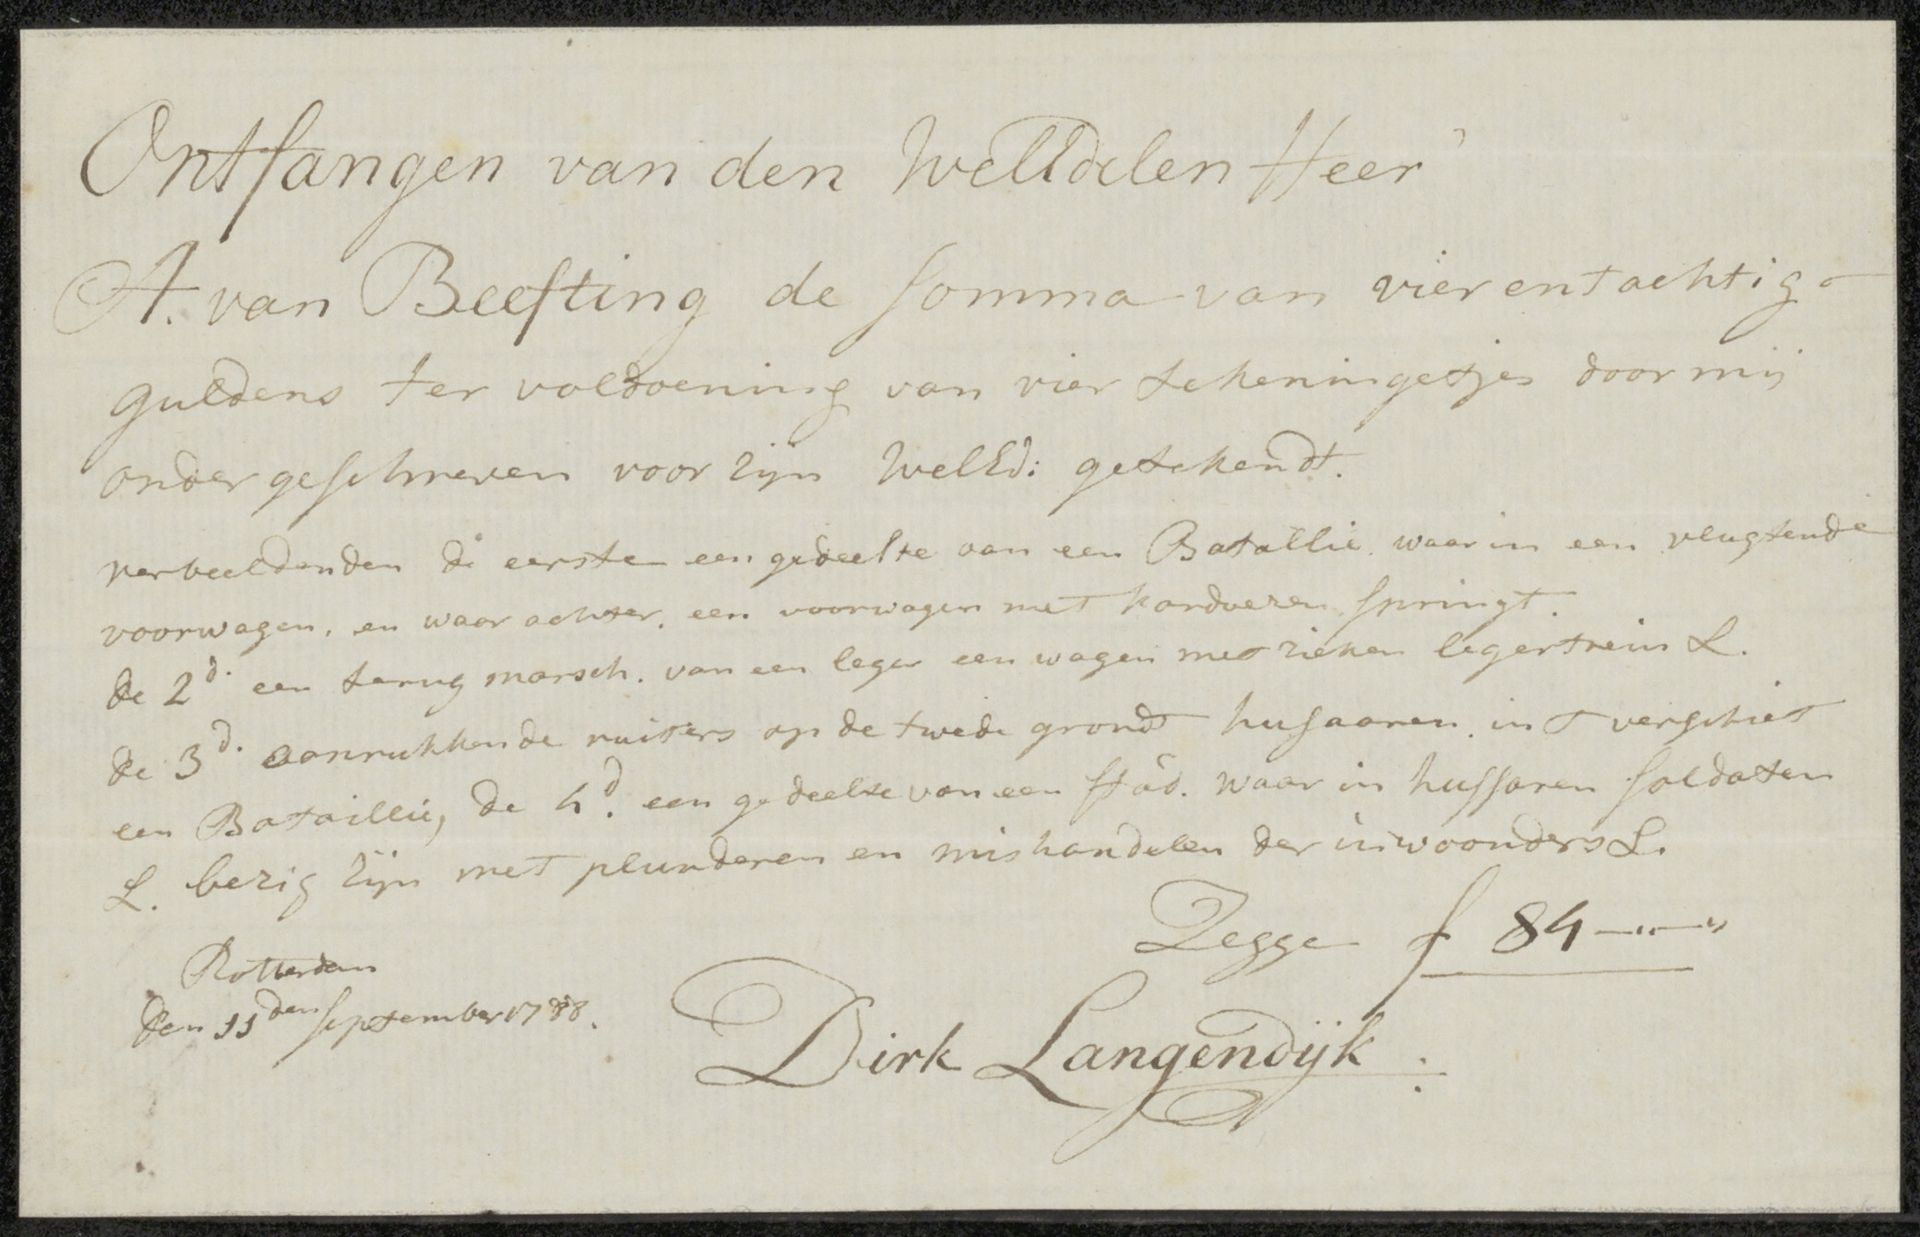 Ontfangen van den WelEdelen Heer
A. van Beefting de somma van vierentachtig
guldens ter voldoening van vier tekeningetjes door mij
ondergeschreven voor zijn WelEd: getekendt.
verbeeldenden de eerste een gedeelte van een Batallie waar in een vlugtende
voorwagen, en waar achter, een voorwagen met springt.
de 2d. een terug marsch. van een leger een wagen met zieken legertrein &.
de 3d. aanrukkende ruiters op de twede grondt husaaren in t verschiet
een Bataillie, de 4d. een gedeelte van een stad. waar in hussaren soldaten
&. bezig zijn met plunderen en mishandelen der inwoonders &.
Zegge f 84
Rotterdam
den 11den september 1788.
Dirk Langendijk